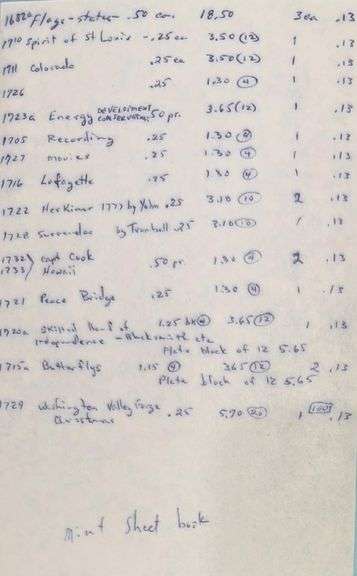 1682a Flags - states - .50 ea. 18.50 3ea .13
1710 Spirit of St Louis - .25 ea 3.50 (12) 1 .13
1711 Colorado .25 ea 3.50 (12) 1 .13
1726 .25 1.30 (4) 1 .13
1723a Energy DEVELOPMENT CONSERVATION .50 pr. 3.65 (12) 1 .13
1705 Recording .25 1.30 (4) 1 .13
1727 movies .25 1.30 (4) 1 .13
1716 Lafayette .25 1.30 (4) 1 .13
1722 Herkimer 1777 by Yohn .25 3.10 (10) 2 .13
1728 Surrender by Trumbull .25 3.10 (10) 1 .13
1732 Capt Cook
1733 Hawaii .50 pr. 1.30 (4) 2 .13
1721 Peace Bridge .25 1.30 (4) 1 .13
1720a Skilled Hands of 1.25 bk (4) 3.65 (12) 1 .13
independence - Blacksmith etc
Plate block of 12 5.65
1715a Butterflys 1.15 (4) 3.65 (12) 2 .13
Plate block of 12 5.65
1729 Washington Valley Forge .25 5.70 (20) 1 100 .13
Christmas
Mint Sheet book